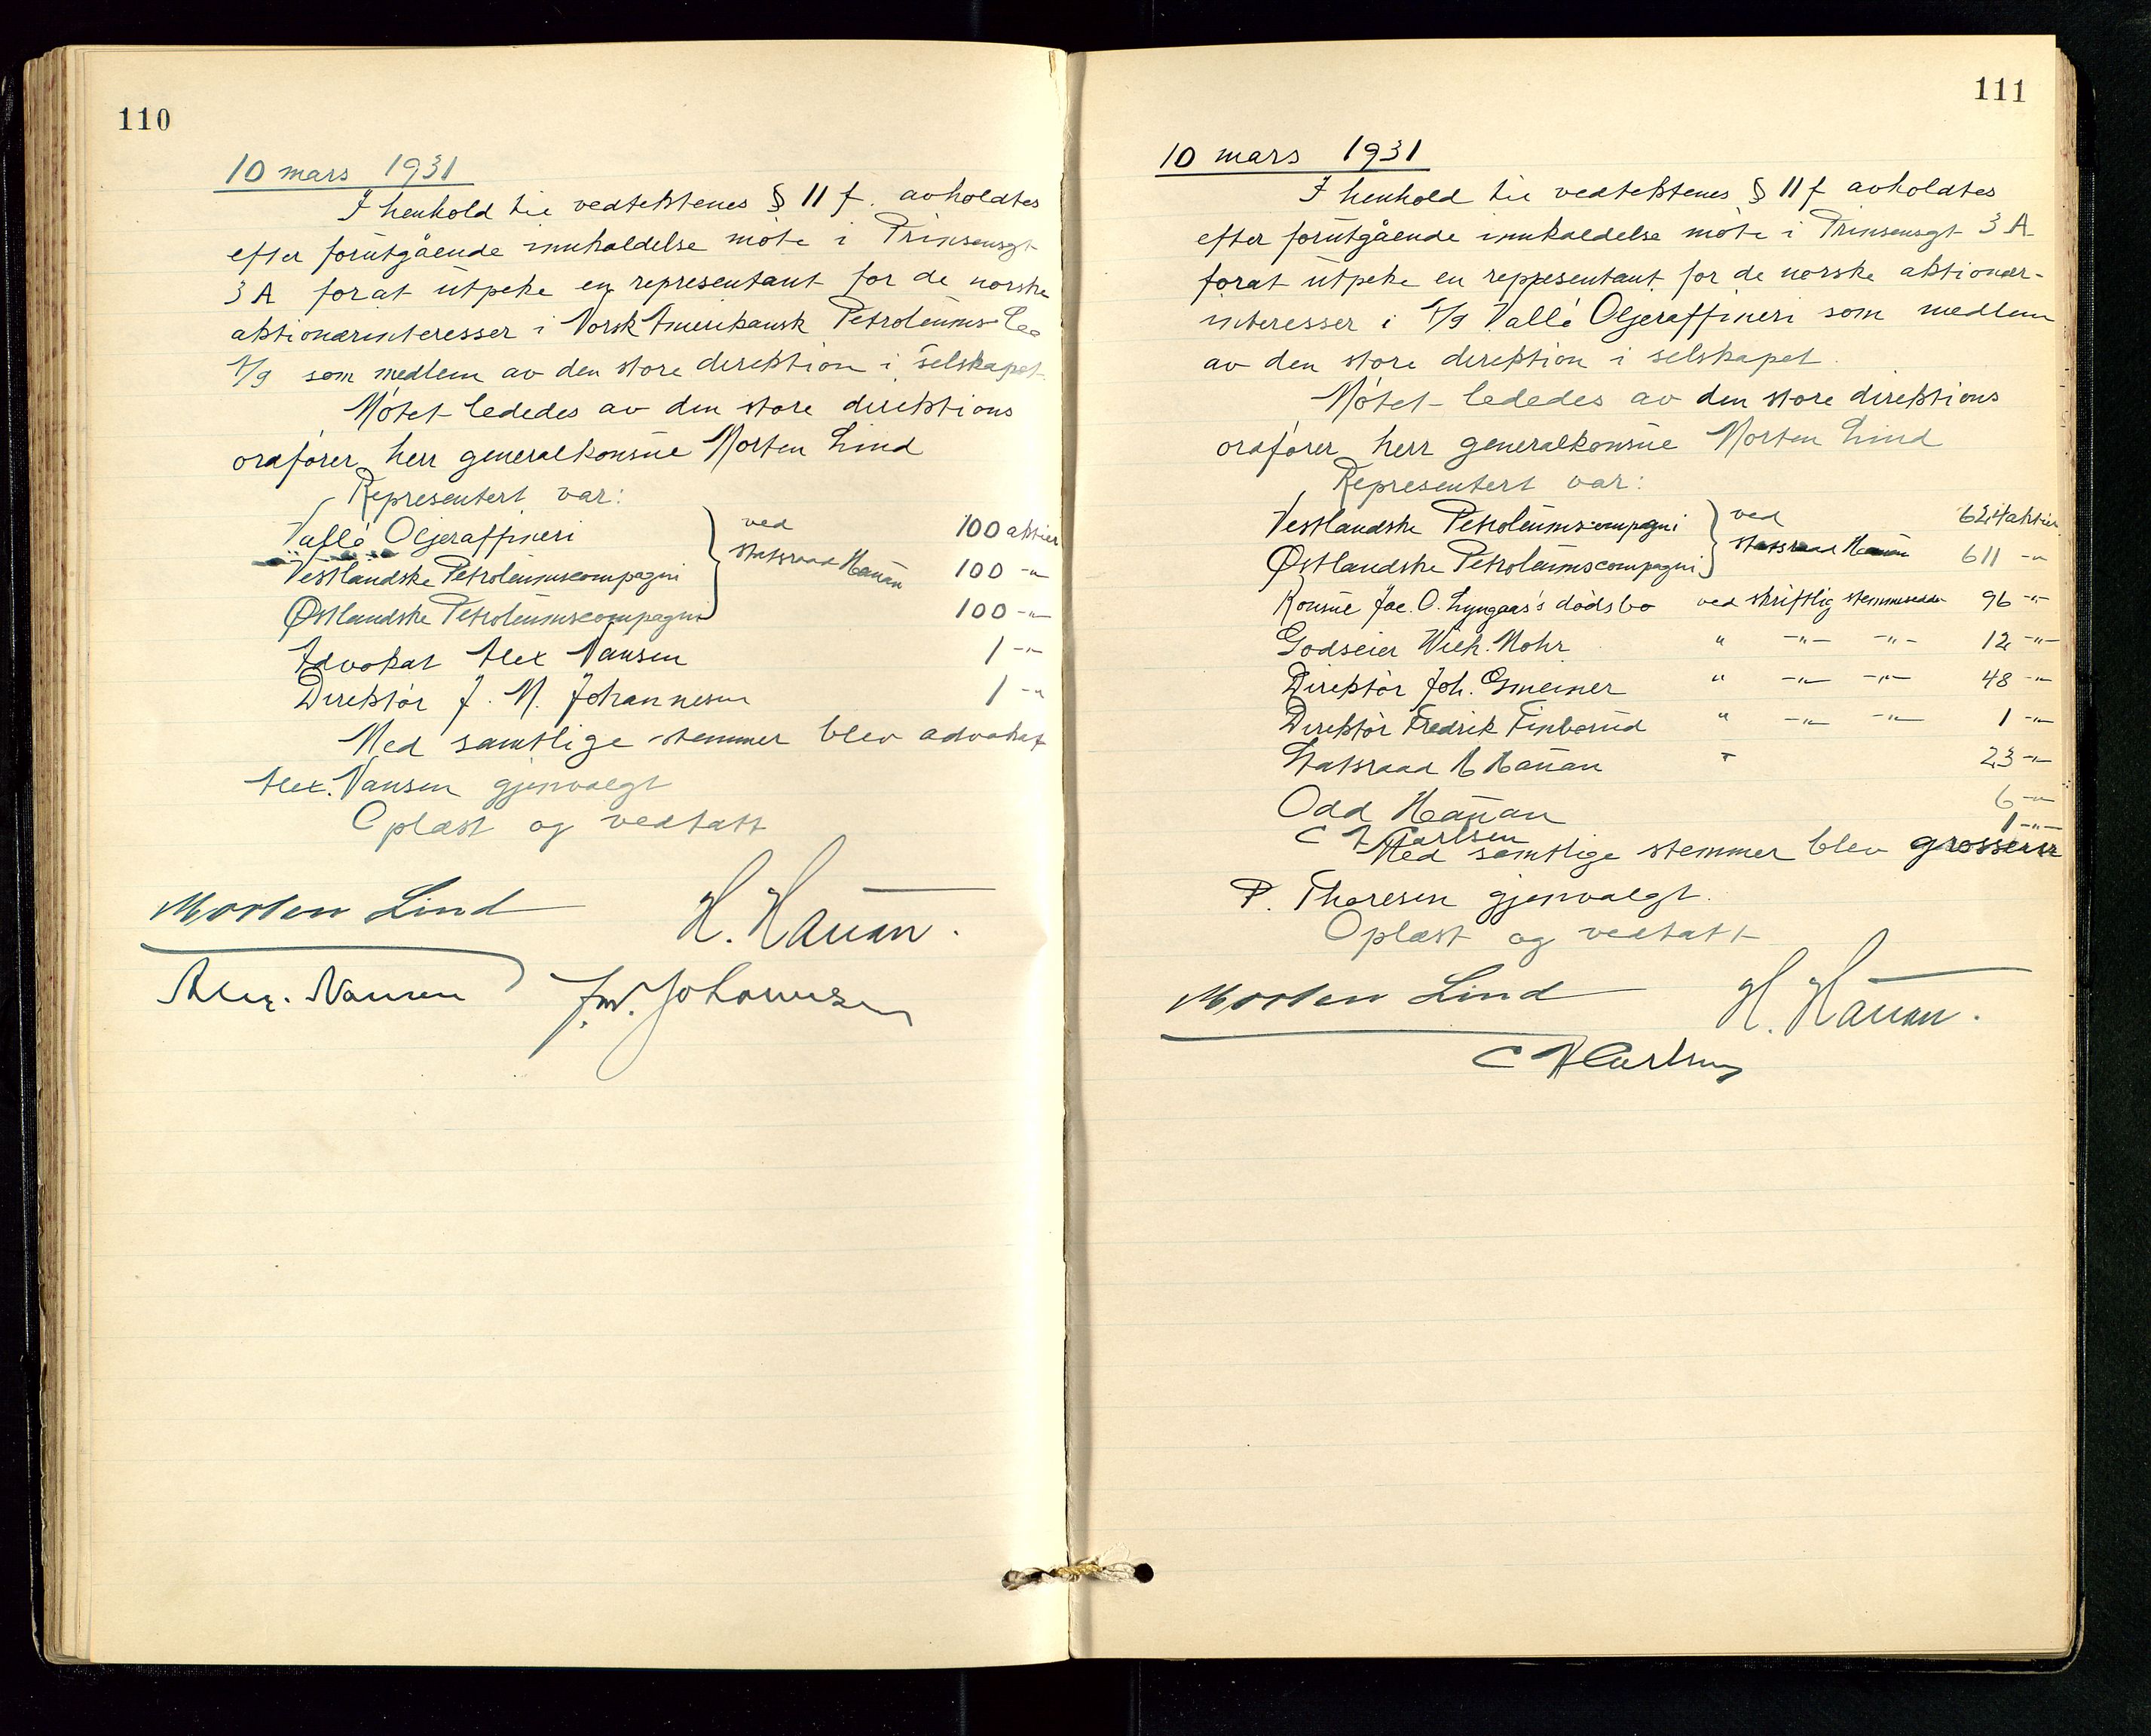 110
10 mars 1931
I henhold til vedtektenes § 11 f. avholdtes
efter forutgående innkaldelse møte i Prinsensgt
3 A forat utpeke en representant for de norske
aktionærinteresser i Norsk Amerikansk Petroleums Co
A/S som medlem av den store direktion i selskapet.
Møtet lededes av den store direktions
ordfører, herr generalkonsul Morten Lind
Representert var:
Vallø Oljeraffineri ved 100 aktier
Vestlandske Petroleumscompagni statsraad Hauan 100 -"-
Østlandske Petroleumscompagni 100 -"-
Advokat Alex Nansen 1 -"-
Direktør J. M. Johannesen 1 -"-
Med samtlige stemmer blev advokat
Alex. Nansen gjenvalgt
Oplæst og vedtatt
Morten Lind H. Hauan.
Alex. Nansen J.M. Johannesen
111
10 mars 1931
I henhold til vedtektenes § 11 f avholdtes
efter forutgående innkaldelse møte i Prinsensgt 3 A
forat utpeke en representant for de norske aktionær-
interesser i A/S Vallø Oljeraffineri som medlem
av den store direktion i selskapet.
Møtet lededes av den store direktions
ordfører, herr generalkonsul Morten Lind
Representert var:
Vestlandske Petroleumscompagni ved 624 aktier
Østlandske Petroleumscompagni statsraad Hauan 611 -"-
Konsul Jac. O. Lyngaas's dødsbo ved skriftlig stemmeseddel 96 -"-
Godseier Wilh. Mohr " -"- -"- 12 -"-
Direktør Joh. Gmeiner " -"- -"- 48 -"-
Direktør Fredrik Finborud " -"- -"- 1 -"-
Statsraad H Hauan " 23 -"-
Odd Hauan 6 -"-
C H Carlsen 1 -"-
Med samtlige stemmer blev grosserer
P. Thoresen gjenvalgt.
Oplæst og vedtatt
Morten Lind H. Hauan.
C H Carlsen